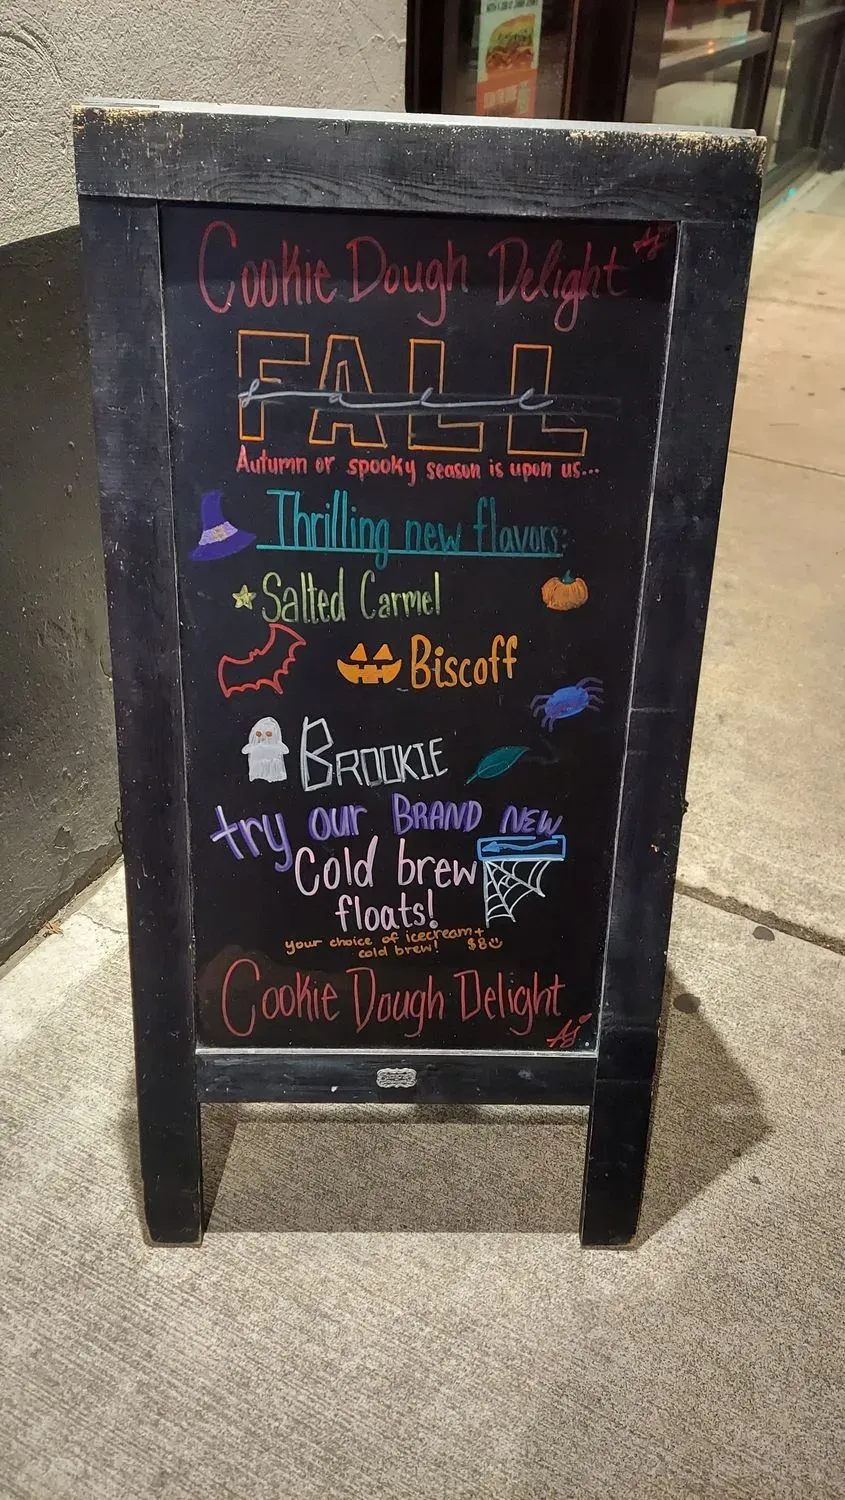 Cookie Dough Delight
FALL
fall
Autumn or spooky season is upon us...
Thrilling new flavors:
Salted Carmel
Biscoff
BROOKIE
try our BRAND NEW
Cold brew
floats!
your choice of icecream +
cold brew! $8
Cookie Dough Delight